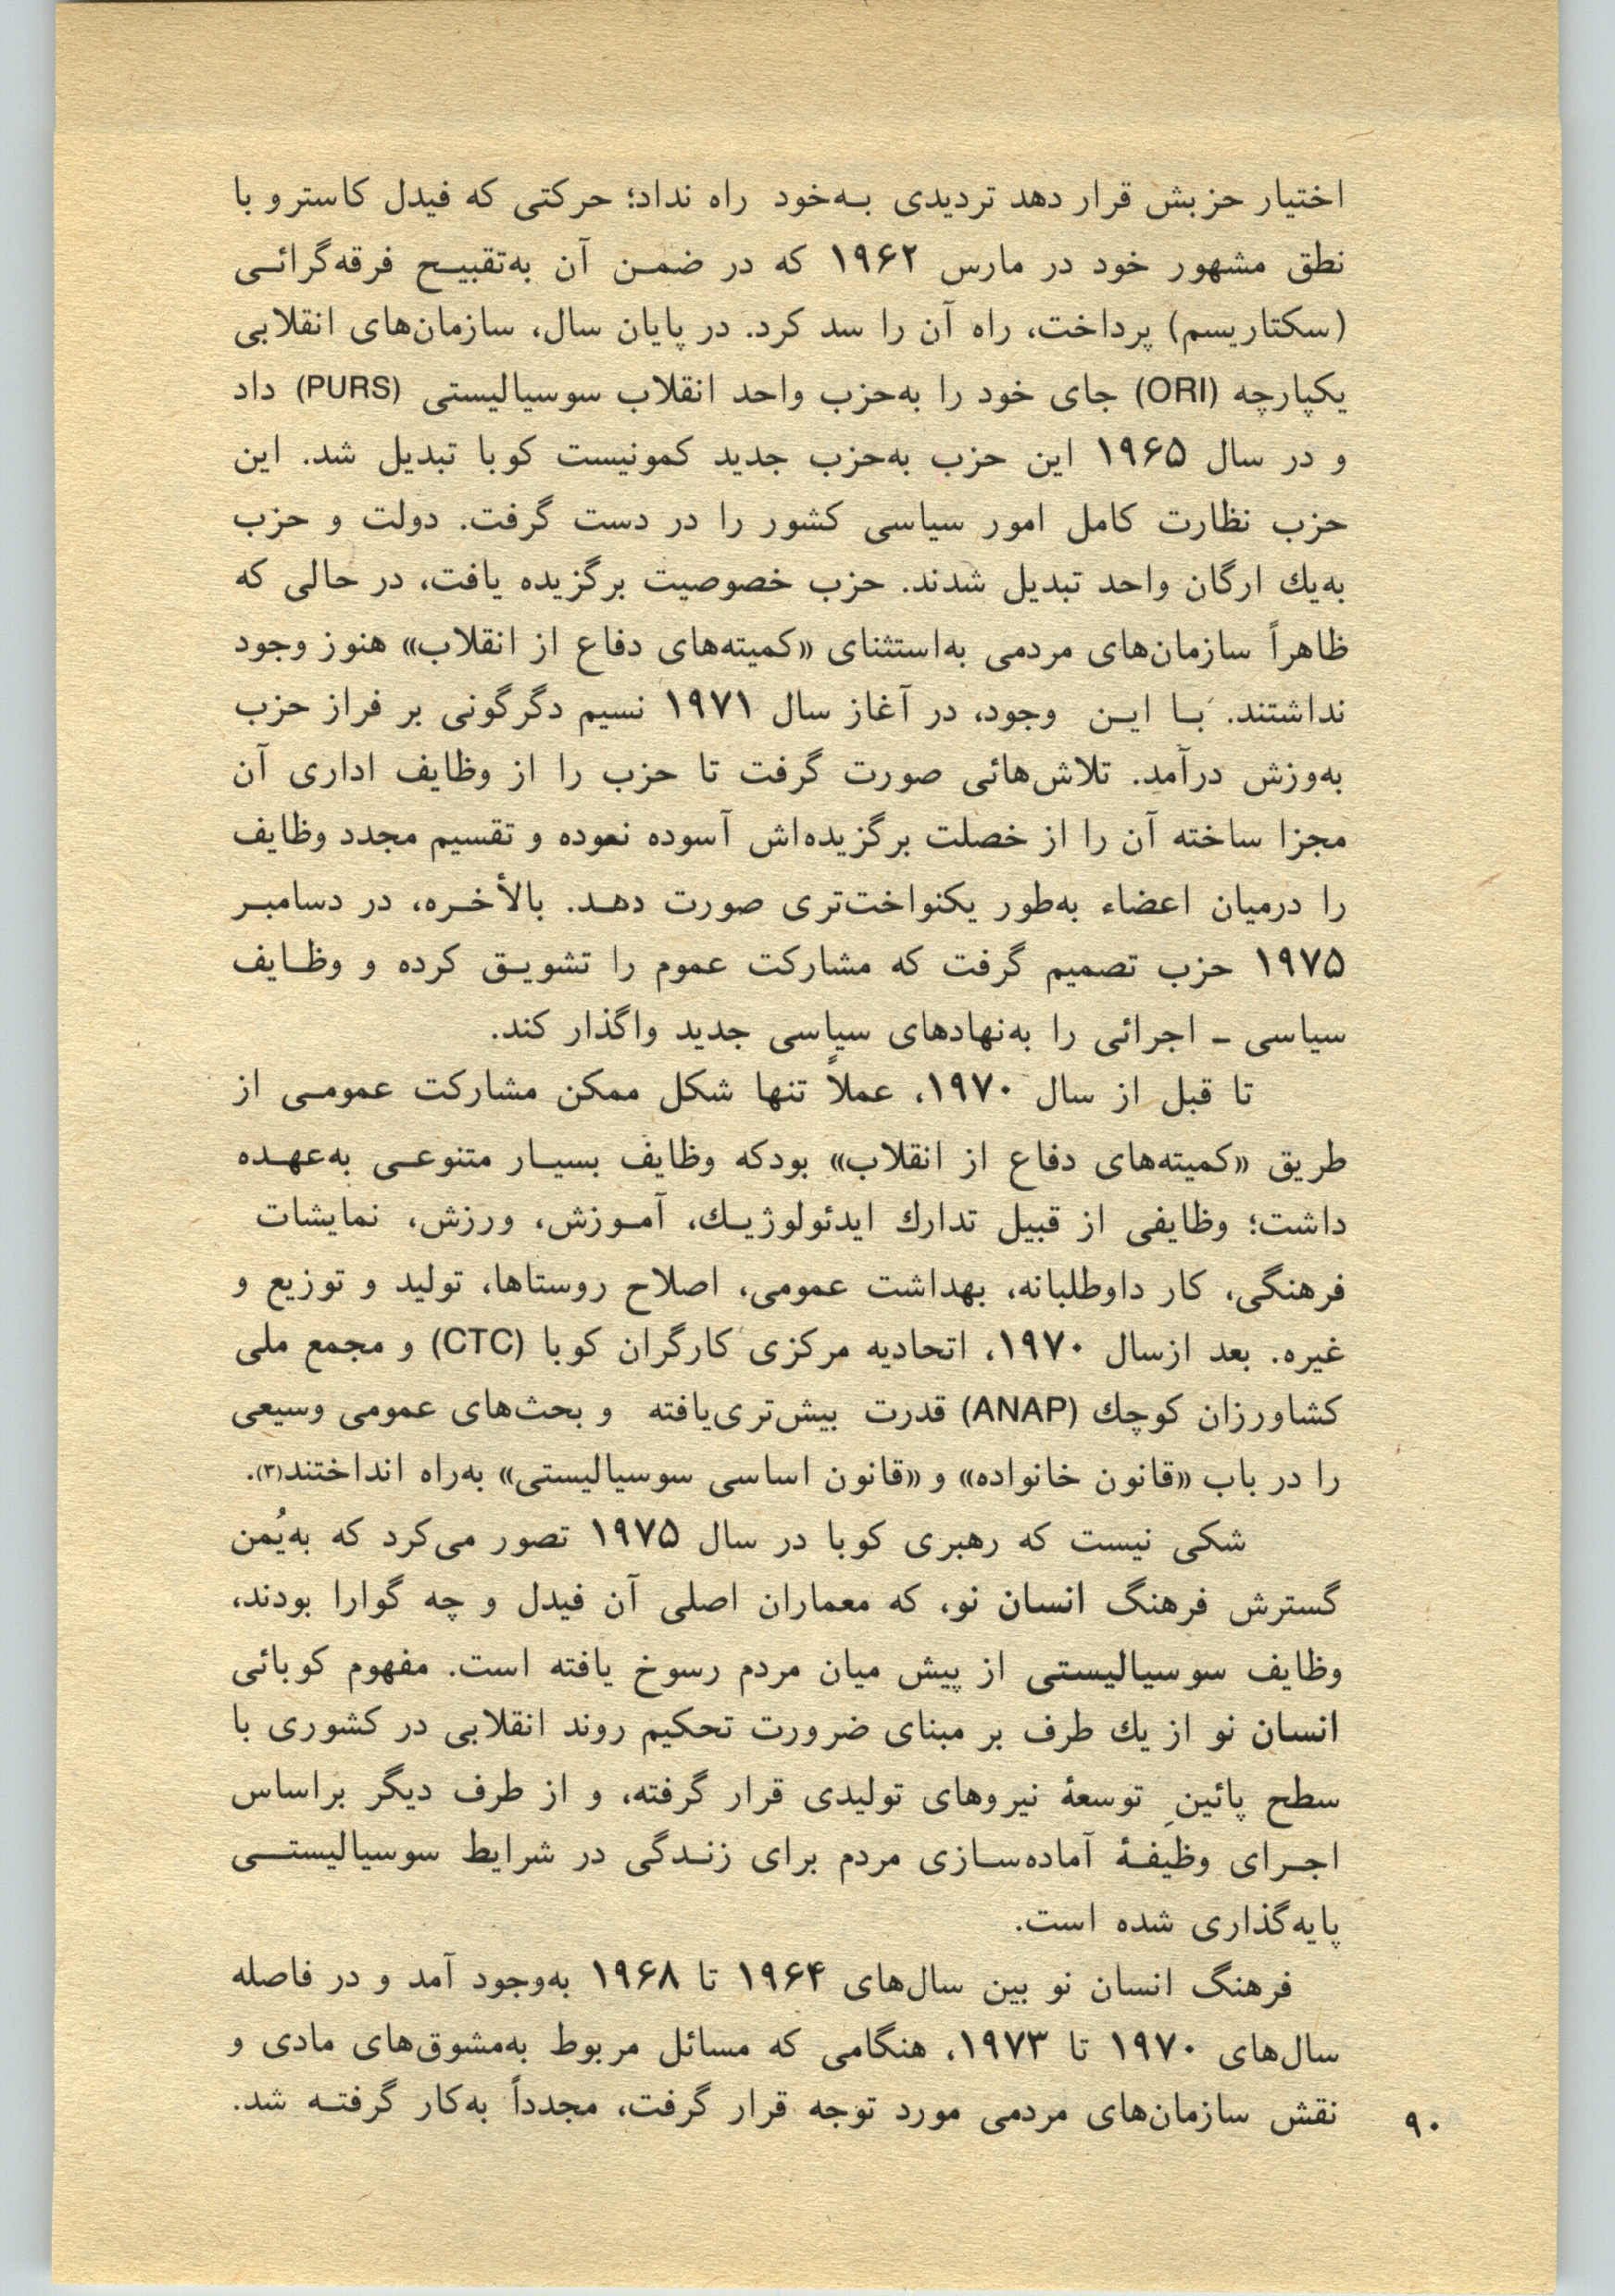 اختیار حزبش قرار دهد تردیدی بـه‌خود راه نداد؛ حرکتی که فیدل کاسترو با
نطق مشهور خود در مارس ۱۹۶۲ که در ضمـن آن به‌تقبیـح فرقه‌گرائـی
(سکتاریسم) پرداخت، راه آن را سد کرد. در پایان سال، سازمان‌های انقلابی
یکپارچه (ORI) جای خود را به‌حزب واحد انقلاب سوسیالیستی (PURS) داد
و در سال ۱۹۶۵ این حزب به‌حزب جدید کمونیست کوبا تبدیل شد. این
حزب نظارت کامل امور سیاسی کشور را در دست گرفت. دولت و حزب
به‌یك ارگان واحد تبدیل شدند. حزب خصوصیت برگزیده یافت، در حالی که
ظاهراً سازمان‌های مردمی به‌استثنای «کمیته‌های دفاع از انقلاب» هنوز وجود
نداشتند. بـا ایـن وجود، در آغاز سال ۱۹۷۱ نسیم دگرگونی بر فراز حزب
به‌وزش درآمد. تلاش‌هائی صورت گرفت تا حزب را از وظایف اداری آن
مجزا ساخته آن را از خصلت برگزیده‌اش آسوده نموده و تقسیم مجدد وظایف
را درمیان اعضاء به‌طور یکنواخت‌تری صورت دهـد. بالأخـره، در دسامبـر
۱۹۷۵ حزب تصمیم گرفت که مشارکت عموم را تشویـق کرده و وظـایف
سیاسی ـ اجرائی را به‌نهادهای سیاسی جدید واگذار کند.
تا قبل از سال ۱۹۷۰، عملاً تنها شکل ممکن مشارکت عمومـی از
طریق «کمیته‌های دفاع از انقلاب» بودکه وظایف بسیـار متنوعـی به‌عهـده
داشت؛ وظایفی از قبیل تدارك ایدئولوژیـك، آمـوزش، ورزش، نمایشات
فرهنگی، کار داوطلبانه، بهداشت عمومی، اصلاح روستاها، تولید و توزیع و
غیره. بعد ازسال ۱۹۷۰، اتحادیه مرکزی کارگران کوبا (CTC) و مجمع ملی
کشاورزان کوچك (ANAP) قدرت بیش‌تری‌یافته و بحث‌های عمومی وسیعی
را در باب «قانون خانواده» و «قانون اساسی سوسیالیستی» به‌راه انداختند(۳).
شکی نیست که رهبری کوبا در سال ۱۹۷۵ تصور می‌کرد که به‌یُمن
گسترش فرهنگ انسان نو، که معماران اصلی آن فیدل و چه گوارا بودند،
وظایف سوسیالیستی از پیش میان مردم رسوخ یافته است. مفهوم کوبائی
انسان نو از یك طرف بر مبنای ضرورت تحکیم روند انقلابی در کشوری با
سطح پائینِ توسعهٔ نیروهای تولیدی قرار گرفته، و از طرف دیگر براساس
اجـرای وظیفـهٔ آماده‌سـازی مردم برای زنـدگی در شرایط سوسیالیستـی
پایه‌گذاری شده است.
فرهنگ انسان نو بین سال‌های ۱۹۶۴ تا ۱۹۶۸ به‌وجود آمد و در فاصله
سال‌های ۱۹۷۰ تا ۱۹۷۳، هنگامی که مسائل مربوط به‌مشوق‌های مادی و
نقش سازمان‌های مردمی مورد توجه قرار گرفت، مجدداً به‌کار گرفتـه شد.
۹۰